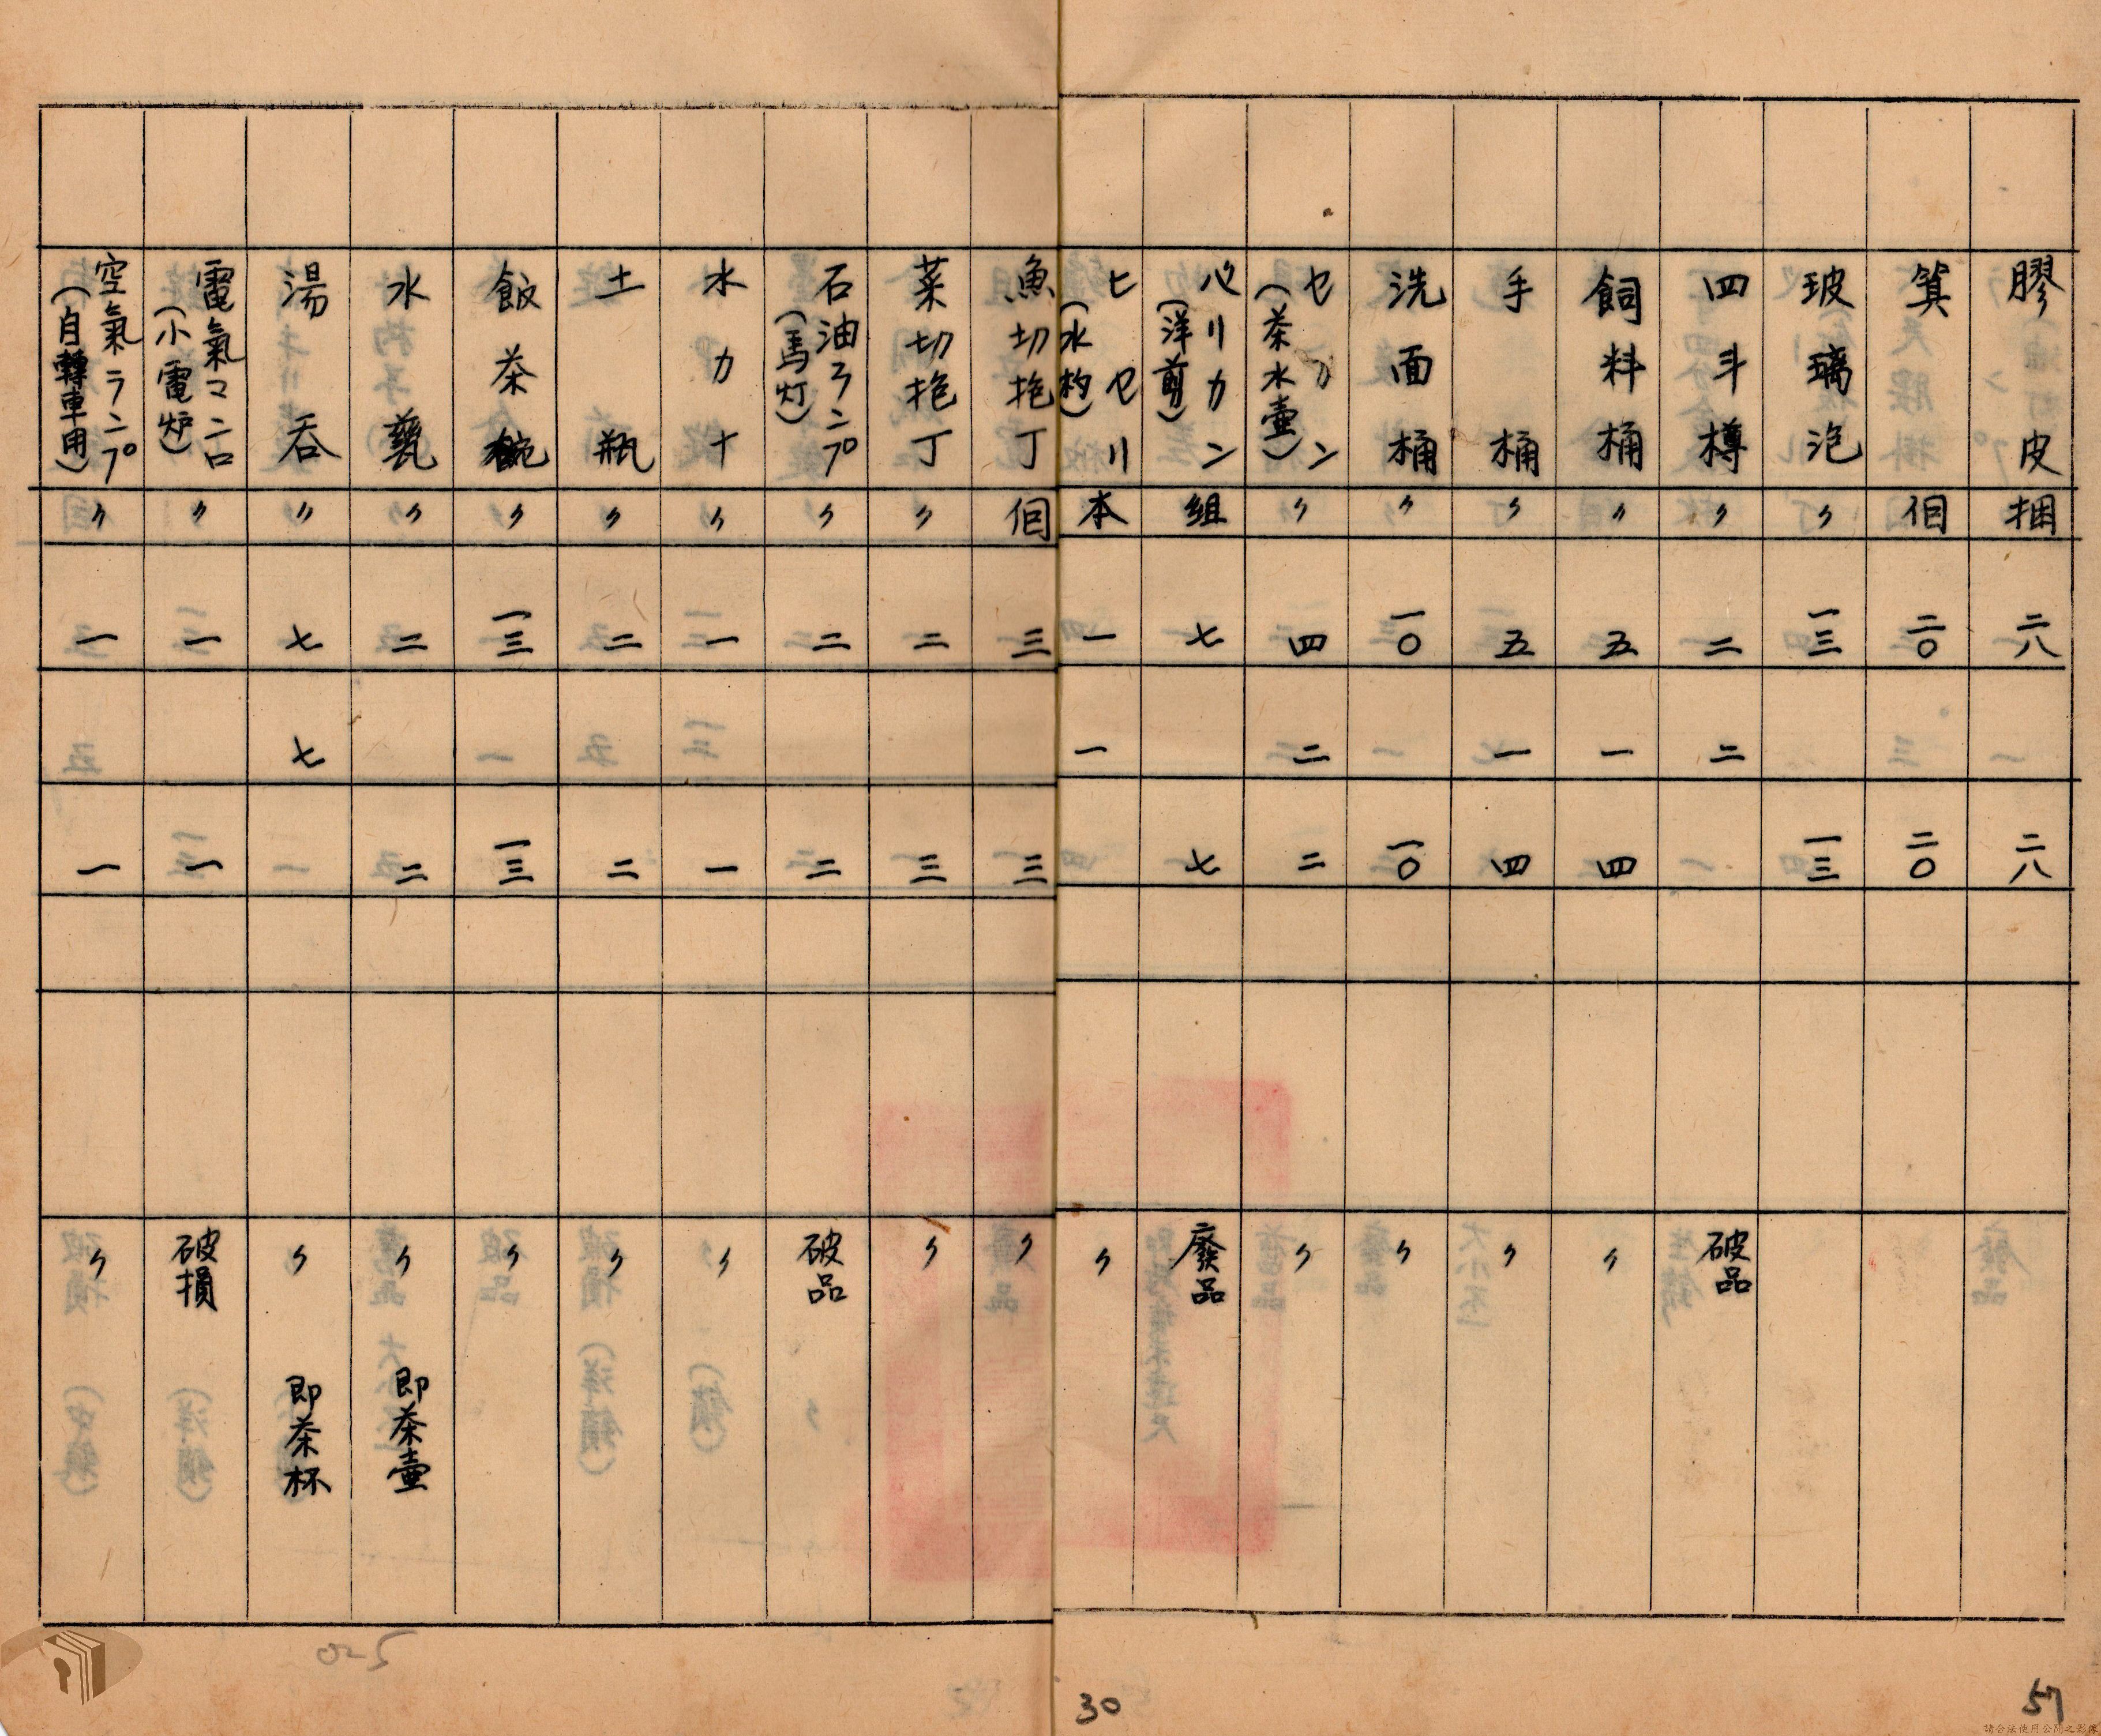 膠皮 捆 二八 二八
箕 個 二〇 二〇
玻璃泡 〃 一三 一三
四斗樽 〃 二 二 破品
飼料桶 〃 五 一 四 〃
手桶 〃 五 一 四 〃
洗面桶 〃 一〇 一〇 〃
ヤカン
(茶水壷) 〃 四 二 二 〃
バリカン
(洋剪) 組 七 七 廢品
ヒセリ
(水杓) 本 一 一 〃
魚切抱丁 個 三 三 〃
菜切抱丁 〃 二 三 〃
石油ランプ
(馬灯) 〃 二 二 破品
水カナ 〃 一 一 〃
土瓶 〃 二 二 〃
飯茶碗 〃 一三 一三 〃
水甕 〃 二 二 〃 即茶壷
湯呑 〃 七 七 〃 即茶杯
電氣マンロ
(小電炉) 〃 一 一 破損
空氣ランプ
(自轉車用) 〃 一 一 〃
30
57
請合法使用公開之影像